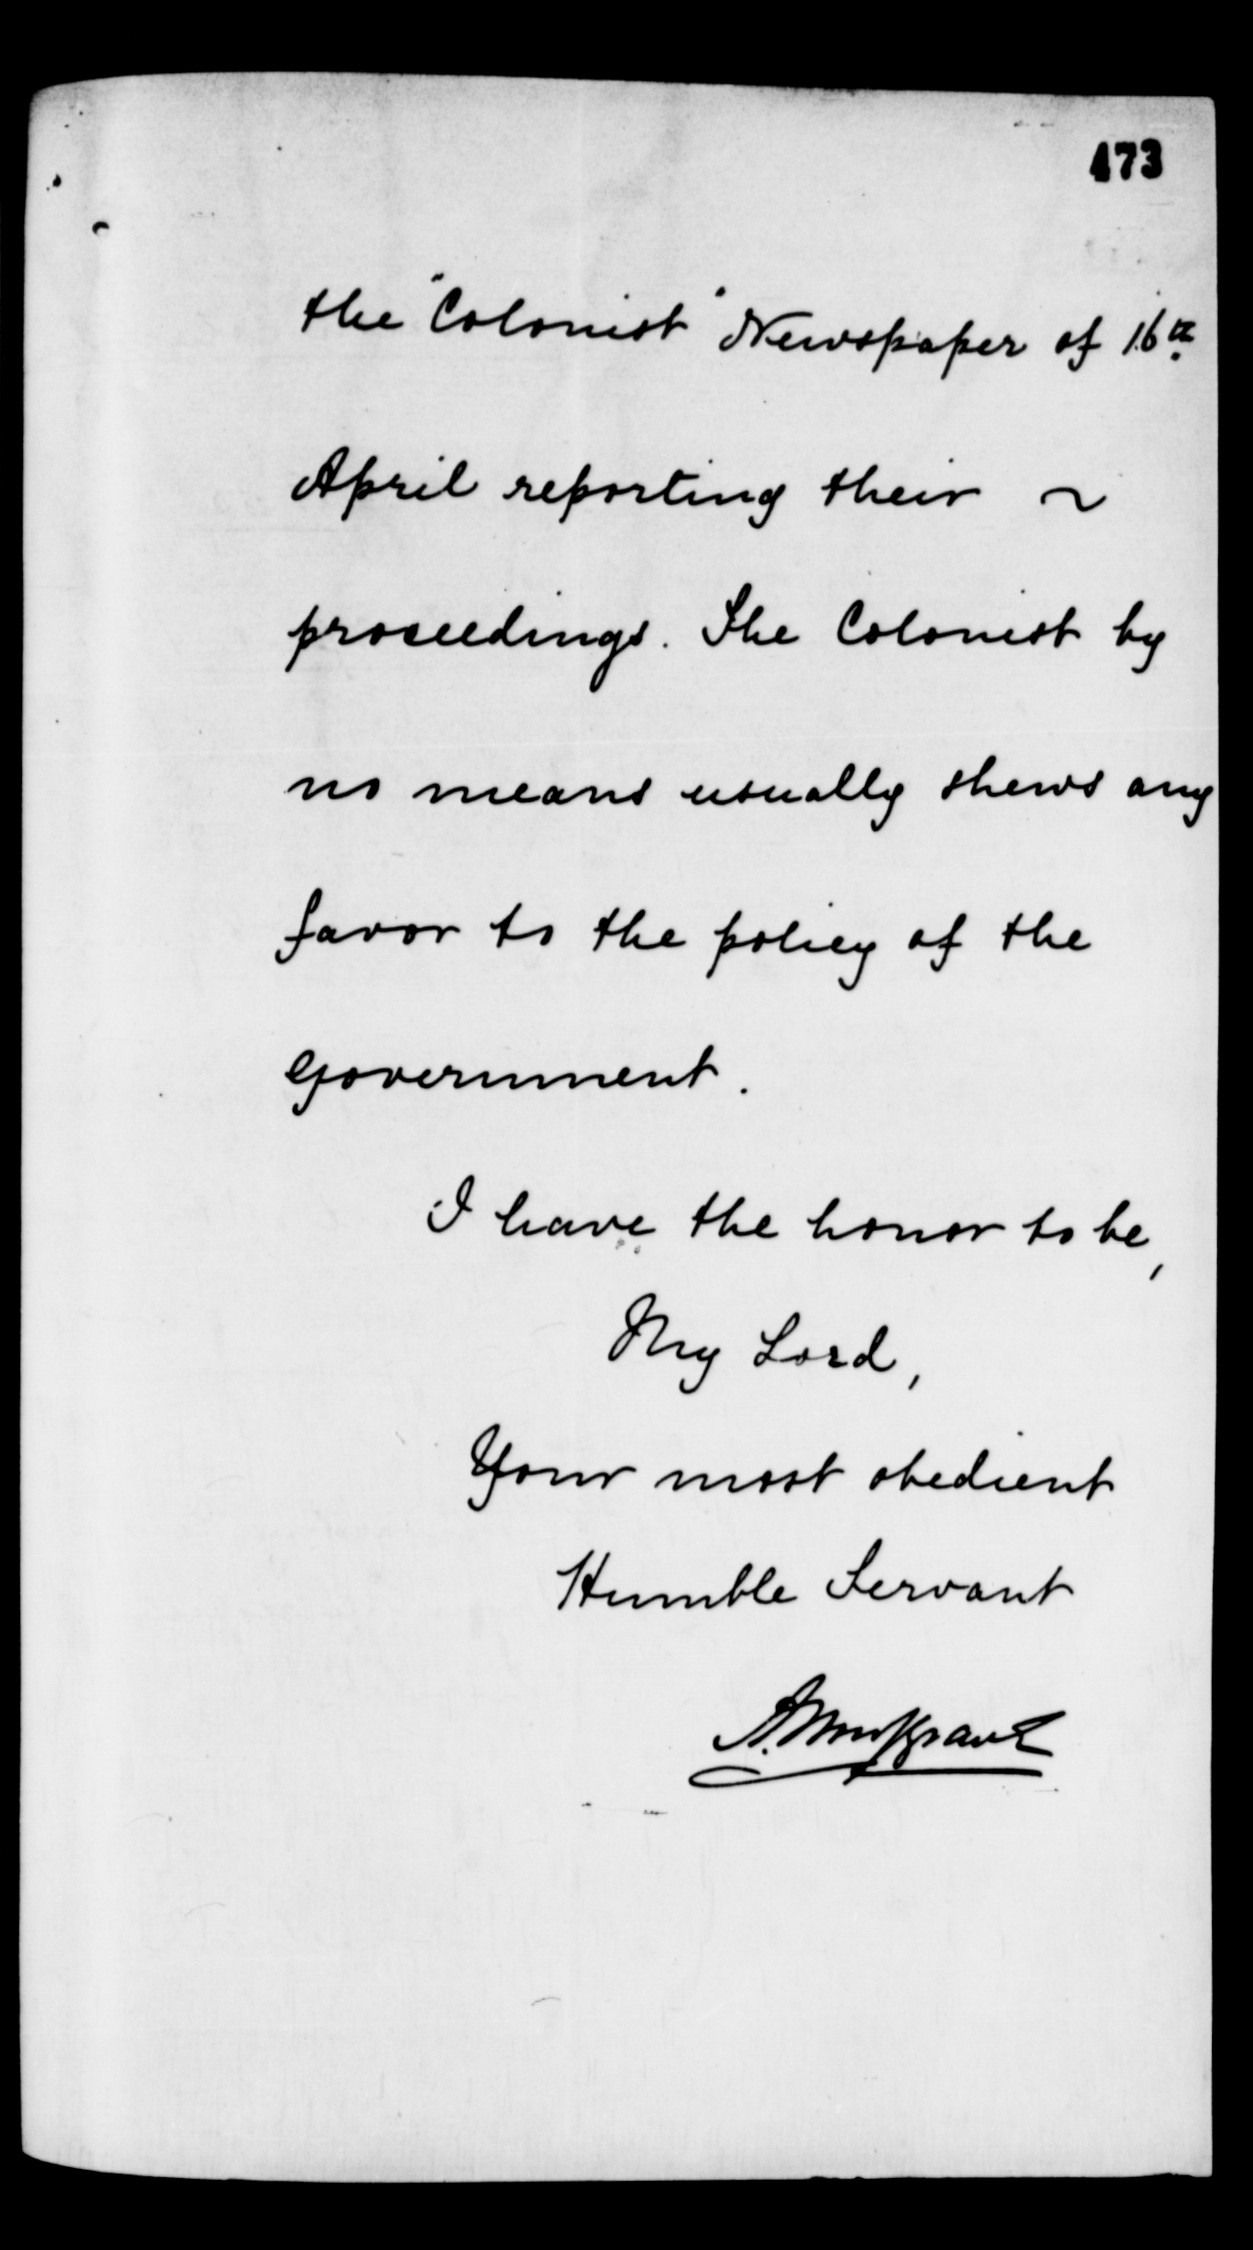 473
the "Colonist" Newspaper of 16th
April reporting their ~
proceedings. The Colonist by
no means usually shews any
favor to the policy of the
Government.
I have the honor to be,
My Lord,
Your most obedient
Humble Servant
A. Musgrave